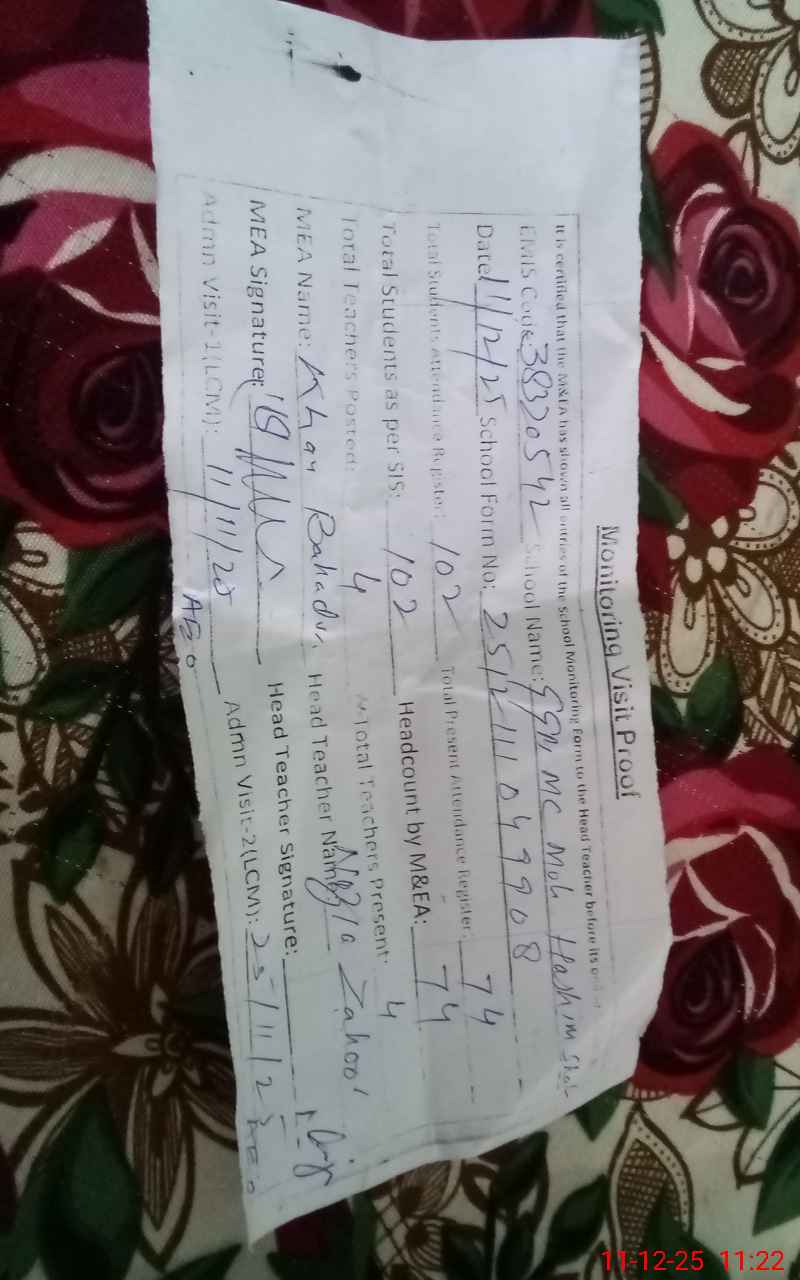 Monitoring Visit Proof
It is certified that the M&EA has shown all entries of the School Monitoring Form to the Head Teacher before its
EMIS Code 38320542 School Name: GGM MC Moh Hashim
Date 11/12/25 School Form No: 2512111049908
Total Students Attendance Register: 102 Total Present Attendance Register: 74
Total Students as per SIS: 102 Headcount by M&EA: 74
Total Teachers Posted: 4 Total Teachers Present: 4
MEA Name: Khan Bahadur Head Teacher Name: Nazia Zahoor
MEA Signature: Head Teacher Signature:
Admn Visit-1(LCM): 11/11/25 AEO Admn Visit-2(LCM): 25/11/25 AEO
11-12-25 11:22